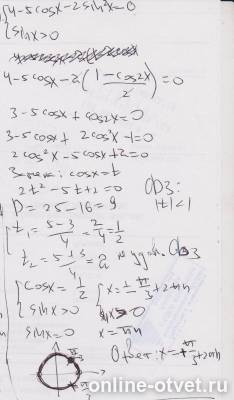 4-5cosx-2sin²x=0
sinx>0
4-5cosx-2(1-cos2x/2)=0
3-5cosx+cos2x=0
3-5cosx+2cos²x-1=0
2cos²x-5cosx+2=0
Замена: cosx=t
ОДЗ:
2t²-5t+2=0
|t|<1
D=25-16=9
t₁=5-3/4=2/4=1/2
t₂=5+3/4=2 не удов. ОДЗ
cosx=1/2
x=±π/3+2πn
sinx>0
sinx=0
x=πn
π/3
-π/3
Ответ: x=+π/3+2πn
online-otvet.ru